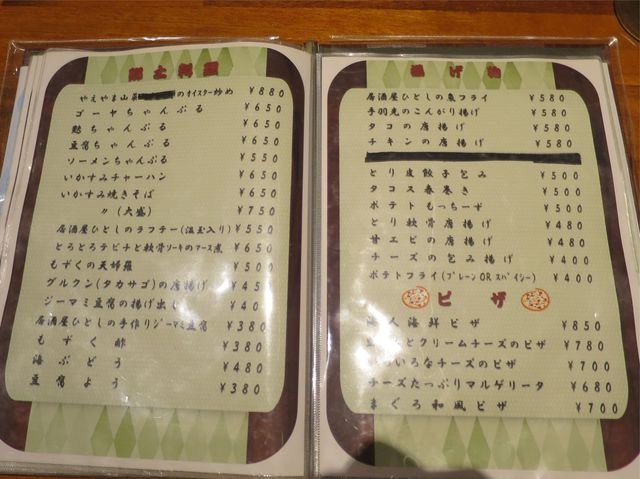 郷土料理
やえやま山菜のオイスター炒め ¥880
ゴーヤちゃんぷる ¥650
麩ちゃんぷる ¥650
豆腐ちゃんぷる ¥650
ソーメンちゃんぷる ¥550
いかすみチャーハン ¥650
いかすみ焼きそば ¥650
〃(大盛) ¥750
居酒屋ひとしのラフテー(温玉入り) ¥550
とろとろテビチと軟骨ソーキのアース煮 ¥650
もずくの天婦羅 ¥500
グルクン(タカサゴ)の唐揚げ ¥45
ジーマミ豆腐の揚げ出し ¥40
居酒屋ひとしの手作りジーマミ豆腐 ¥380
もずく酢 ¥380
海ぶどう ¥480
豆腐よう ¥380
揚げ物
居酒屋ひとしの魚フライ ¥580
手羽先のこんがり揚げ ¥580
タコの唐揚げ ¥580
チキンの唐揚げ ¥580
とり皮餃子包み ¥500
タコス春巻き ¥500
ポテトもっちーず ¥500
とり軟骨唐揚げ ¥480
甘エビの唐揚げ ¥480
チーズの包み揚げ ¥400
ポテトフライ(プレーン OR スパイシー) ¥400
ピザ
海人海鮮ピザ ¥850
とクリームチーズのピザ ¥780
いろなチーズのピザ ¥700
チーズたっぷりマルゲリータ ¥680
まぐろ和風ピザ ¥700